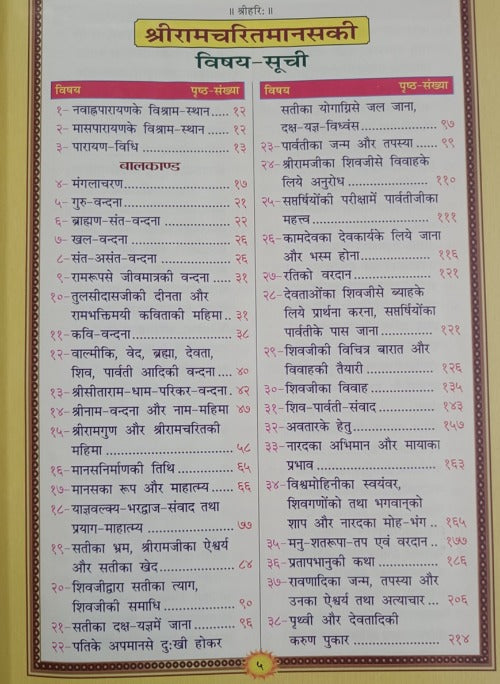 ॥ श्रीहरि: ॥
श्रीरामचरितमानसकी
विषय-सूची
विषय पृष्ठ-संख्या
१- नवाह्नपारायणके विश्राम-स्थान..... १२
२- मासपारायणके विश्राम-स्थान...... १२
३- पारायण-विधि ........................ १३
बालकाण्ड
४- मंगलाचरण............................ १७
५- गुरु-वन्दना ........................... २१
६- ब्राह्मण-संत-वन्दना ................. २२
७- खल-वन्दना .......................... २६
८-संत-असंत-वन्दना .................. २६
९-रामरूपसे जीवमात्रकी वन्दना .... ३१
१०-तुलसीदासजीकी दीनता और
रामभक्तिमयी कविताकी महिमा.. ३१
११-कवि-वन्दना ......................... ३८
१२-वाल्मीकि, वेद, ब्रह्मा, देवता,
शिव, पार्वती आदिकी वन्दना .... ४०
१३-श्रीसीताराम-धाम-परिकर-वन्दना. ४२
१४-श्रीनाम-वन्दना और नाम-महिमा ४७
१५-श्रीरामगुण और श्रीरामचरितकी
महिमा ................................. ५८
१६-मानसनिर्माणकी तिथि ............. ६५
१७-मानसका रूप और माहात्म्य ..... ६६
१८-याज्ञवल्क्य-भरद्वाज-संवाद तथा
प्रयाग-माहात्म्य ..................... ७७
१९-सतीका भ्रम, श्रीरामजीका ऐश्वर्य
और सतीका खेद.................... ८४
२०-शिवजीद्वारा सतीका त्याग,
शिवजीकी समाधि .................. ९०
२१-सतीका दक्ष-यज्ञमें जाना ......... ९६
२२-पतिके अपमानसे दुःखी होकर
विषय पृष्ठ-संख्या
सतीका योगाग्निसे जल जाना,
दक्ष-यज्ञ-विध्वंस .................... ९७
२३-पार्वतीका जन्म और तपस्या ...... ९९
२४-श्रीरामजीका शिवजीसे विवाहके
लिये अनुरोध ....................... ११०
२५-सप्तर्षियोंकी परीक्षामें पार्वतीजीका
महत्त्व ................................ १११
२६-कामदेवका देवकार्यके लिये जाना
और भस्म होना .................... ११६
२७-रतिको वरदान ..................... १२१
२८-देवताओंका शिवजीसे ब्याहके
लिये प्रार्थना करना, सप्तर्षियोंका
पार्वतीके पास जाना .............. १२१
२९-शिवजीकी विचित्र बारात और
विवाहकी तैयारी ................... १२६
३०-शिवजीका विवाह ................. १३५
३१-शिव-पार्वती-संवाद ............... १४३
३२-अवतारके हेतु ...................... १५७
३३-नारदका अभिमान और मायाका
प्रभाव ................................ १६३
३४-विश्वमोहिनीका स्वयंवर,
शिवगणोंको तथा भगवान्‌को
शाप और नारदका मोह-भंग .. १६५
३५-मनु-शतरूपा-तप एवं वरदान .. १७७
३६-प्रतापभानुकी कथा ............... १८६
३७-रावणादिका जन्म, तपस्या और
उनका ऐश्वर्य तथा अत्याचार ... २०६
३८-पृथ्वी और देवतादिकी
करुण पुकार ........................ २१४
५